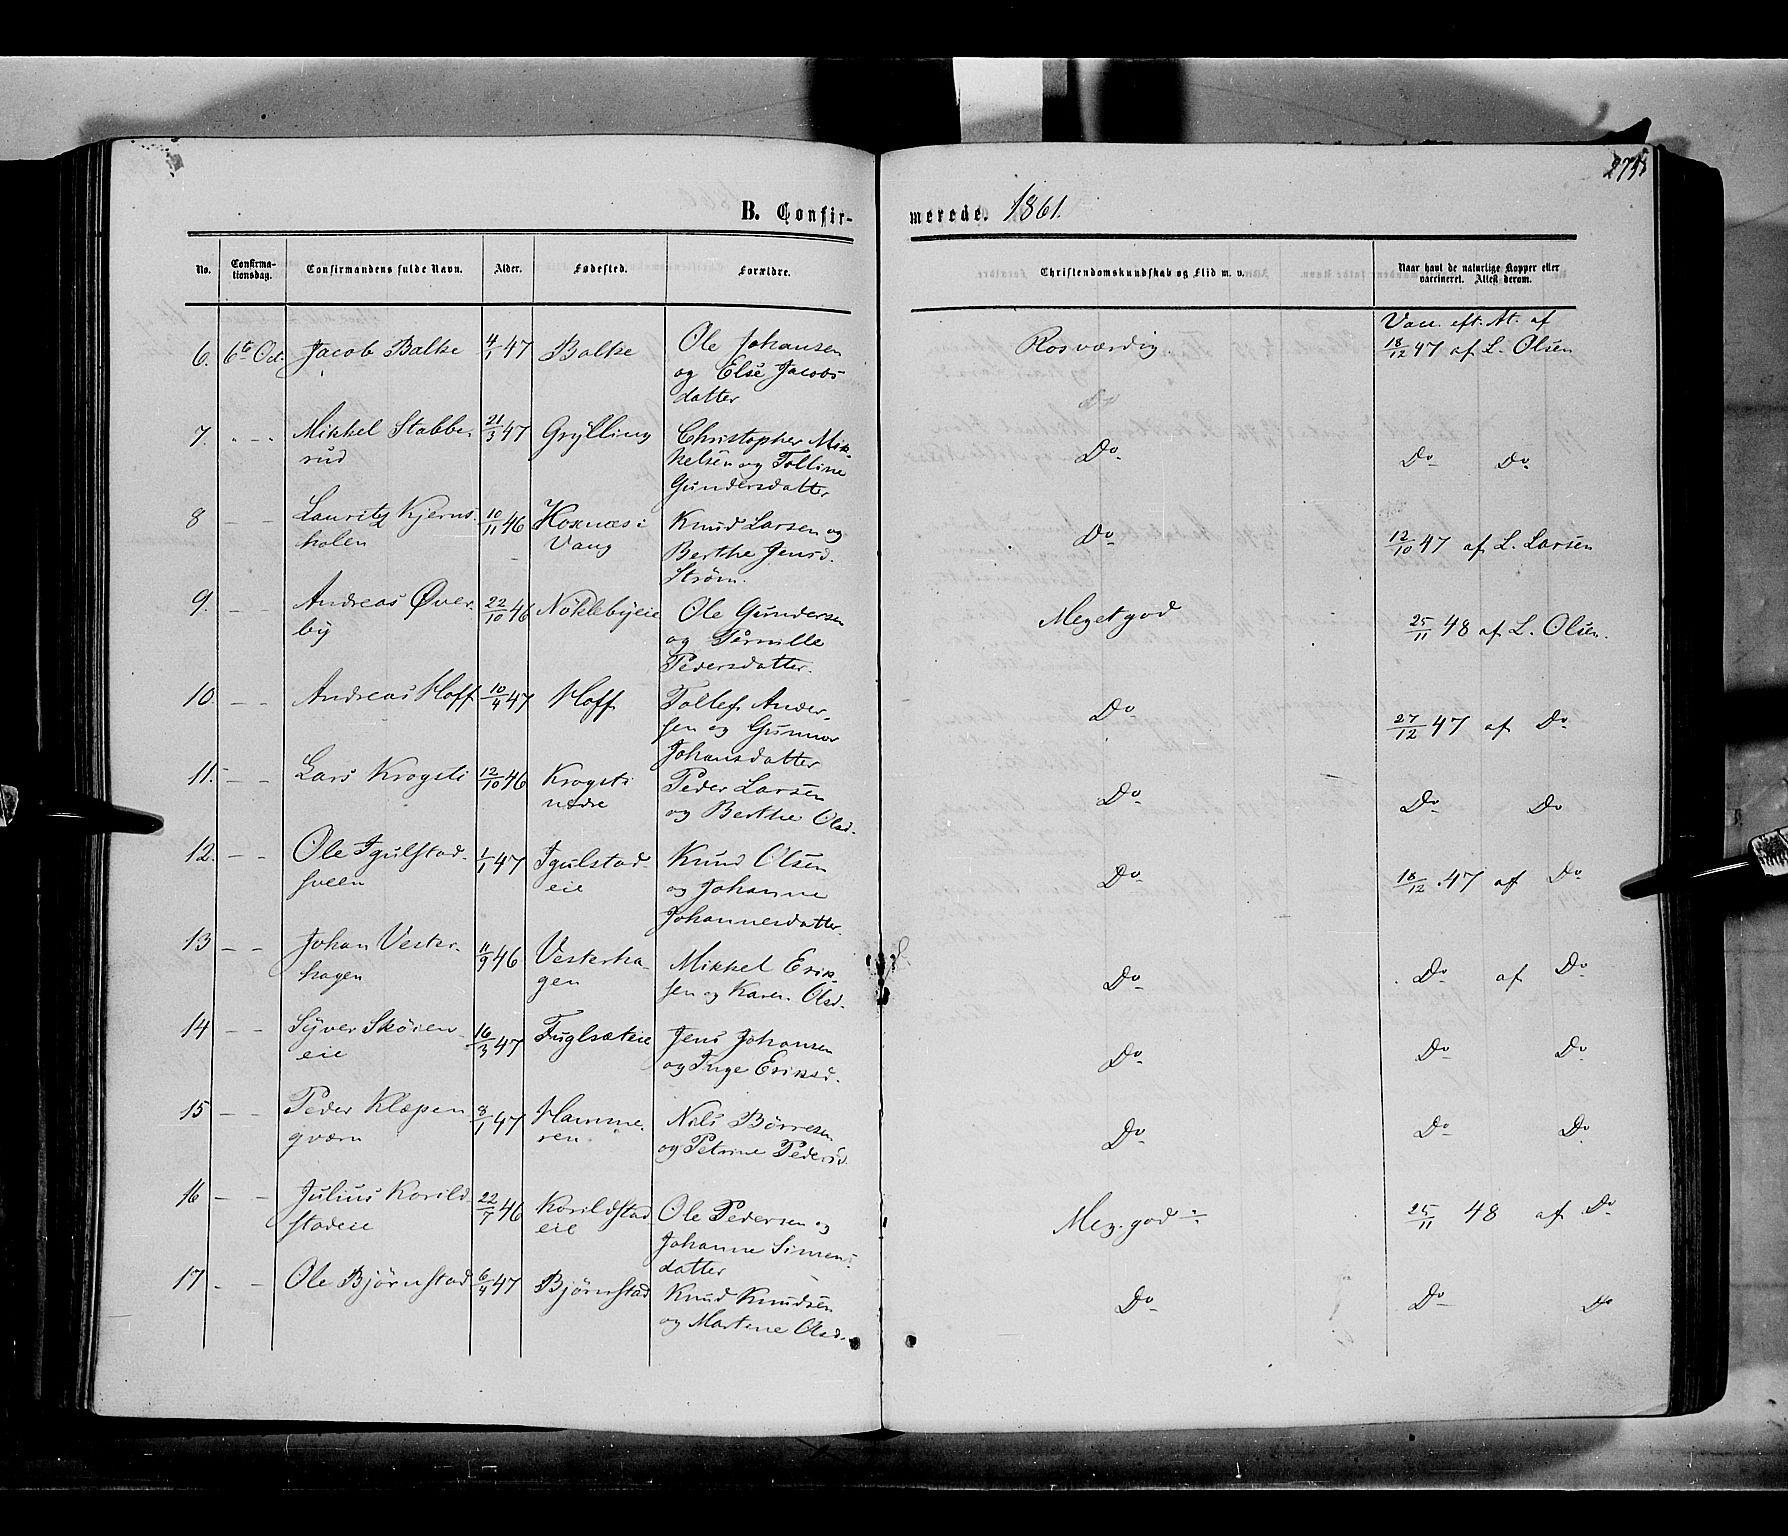 275
B. Confir-
merede. 1861.
No.
Confirma-
tionsdag.
Confirmandens fulde Navn.
Alder.
Fødested.
Forældre.
Christendomskundskab og Flid m. v.
Naar havt de naturlige Kopper eller
vaccineret. Attest derom.
6. 6te Oct. Jacob Balke 4/1 47 Balke Ole Johansen
og Else Jacobs
datter
Rosværdig.
Vacc. eft. At. af
18/12 47 af L. Olsen
7. " - - Mikkel Stabbe-
rud
21/3 47 Grylling Christopher Mik-
kelsen og Tolline
Gundersdatter
Do Do Do
8 - - Lauritz Kjerns-
holen
10/11 46 Hoxnæs i
Vang
Knud Larsen og
Berthe Jensd.
Strøm.
Do 12/10 47 af L. Larsen
9. - - Andreas Øver-
by
22/10 46 Nöklebyeie Ole Gundersen
og Pernille
Pedersdatter.
Meget god 25/11 48 af L. Olsen.
10. - - Andreas Hoff 10/4 47 Hoff Tollef Ander-
sen og Gunnor
Johansdatter
Do 27/12 47 af Do
11. - - Lars Krogsti 12/10 46 Krogsti
nedre
Peder Larsen
og Berthe Olsd.
Do Do Do
12. - - Ole Igulstad-
sveen
1/1 47 Igulstad-
eie
Knud Olsen
og Johanne
Johannesdatter.
Do 18/12 47 af Do
13 - - Johan Vester-
hagen
11/9 46 Vesterha-
gen
Mikkel Erik-
sen og Karen Olsd.
Do Do af Do
14 - - Syver Skøien-
eie
16/3 47 Fuglsæteie Jens Johansen
og Inge Eriksd.
Do Do Do
15 - - Peder Klæpen
qværn
8/1 47 Hamme-
ren
Nils Börresen
og Petrine Pedersd.
Do Do Do
16 - - Julius Korild-
stadeie
22/7 46 Korildstad
eie
Ole Pedersen og
Johanne Simens-
datter
Meg. god 25/11 48 af Do
17 - - Ole Bjørnstad 6/4 47 Bjørnstad Knud Knudsen
og Martine Olsd.
Do Do Do